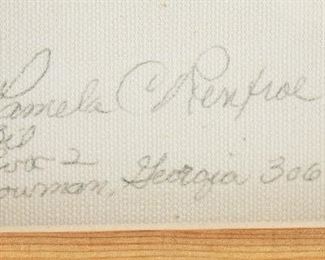 Pamela C Renfroe
Box 2
Bowman, Georgia 306